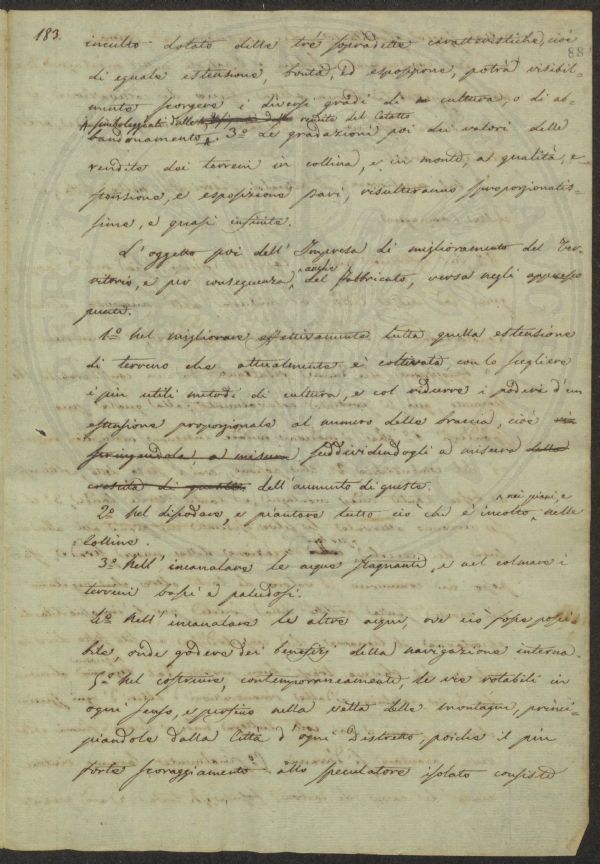 183.
88
inculto dotato delle tré sopradette caratteristiche, cioè
di eguale estensione, bontà, ed esposizione, potrà visibil-
mente scorgere i diversi gradi di cultura, o di ab-
simboleggiati dalle rendite del Catasto
bandonamento. 3º Le gradazioni poi dei valori delle
rendite dei terreni in collina, e in monte, a qualità, e-
stensione, e esposizione pari, risulteranno sproporzionatis-
sime, e quasi infinite.
L'oggetto poi dell'Impresa di miglioramento del Ter-
ritorio, e per conseguenza anche del Fabbricato, versa negli appresso
punti.
1º Nel migliorare effettivamente tutta quella estensione
di terreno che attualmente è coltivata con lo scegliere
i più utili metodi di cultura, e col ridurre i poderi d'un
estensione proporzionale al numero delle braccia, cioè
stringendole, a misura suddividendogli a misura della
crescita di quelle dell'aumento di queste.
2º Nel dissodare, e piantare tutto ciò ch'è incolto nei piani, e nelle
Colline.
3º Nell'incanalare le acque stagnanti, e nel colmare i
terreni bassi e paludosi.
4º Nell'incanalare le altre acque, ove ciò fosse possi-
bile, onde godere dei benefizj della navigazione interna.
5º Nel costruire, contemporaneamente, le vie rotabili in
ogni senso, e persino nella vetta delle montagne, princi-
piandole dalla Città d'ogni Distretto, poiche il più
forte scoraggiamento allo speculatore isolato consiste